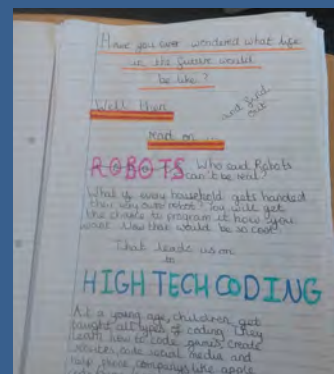 Have you ever wondered what life
in the future would
be like?
Well then
and find
out
read on ...
ROBOTS Who said Robots
can't be real?
What if every household gets handed
their very own robot? You will get
the chance to program it how you
want. Now that would be so cool.
That leads us on
to
HIGH TECH CODING
At a young age, children get
taught all types of coding. They
learn how to code games, create
websites, code social media and
help
companys like apple